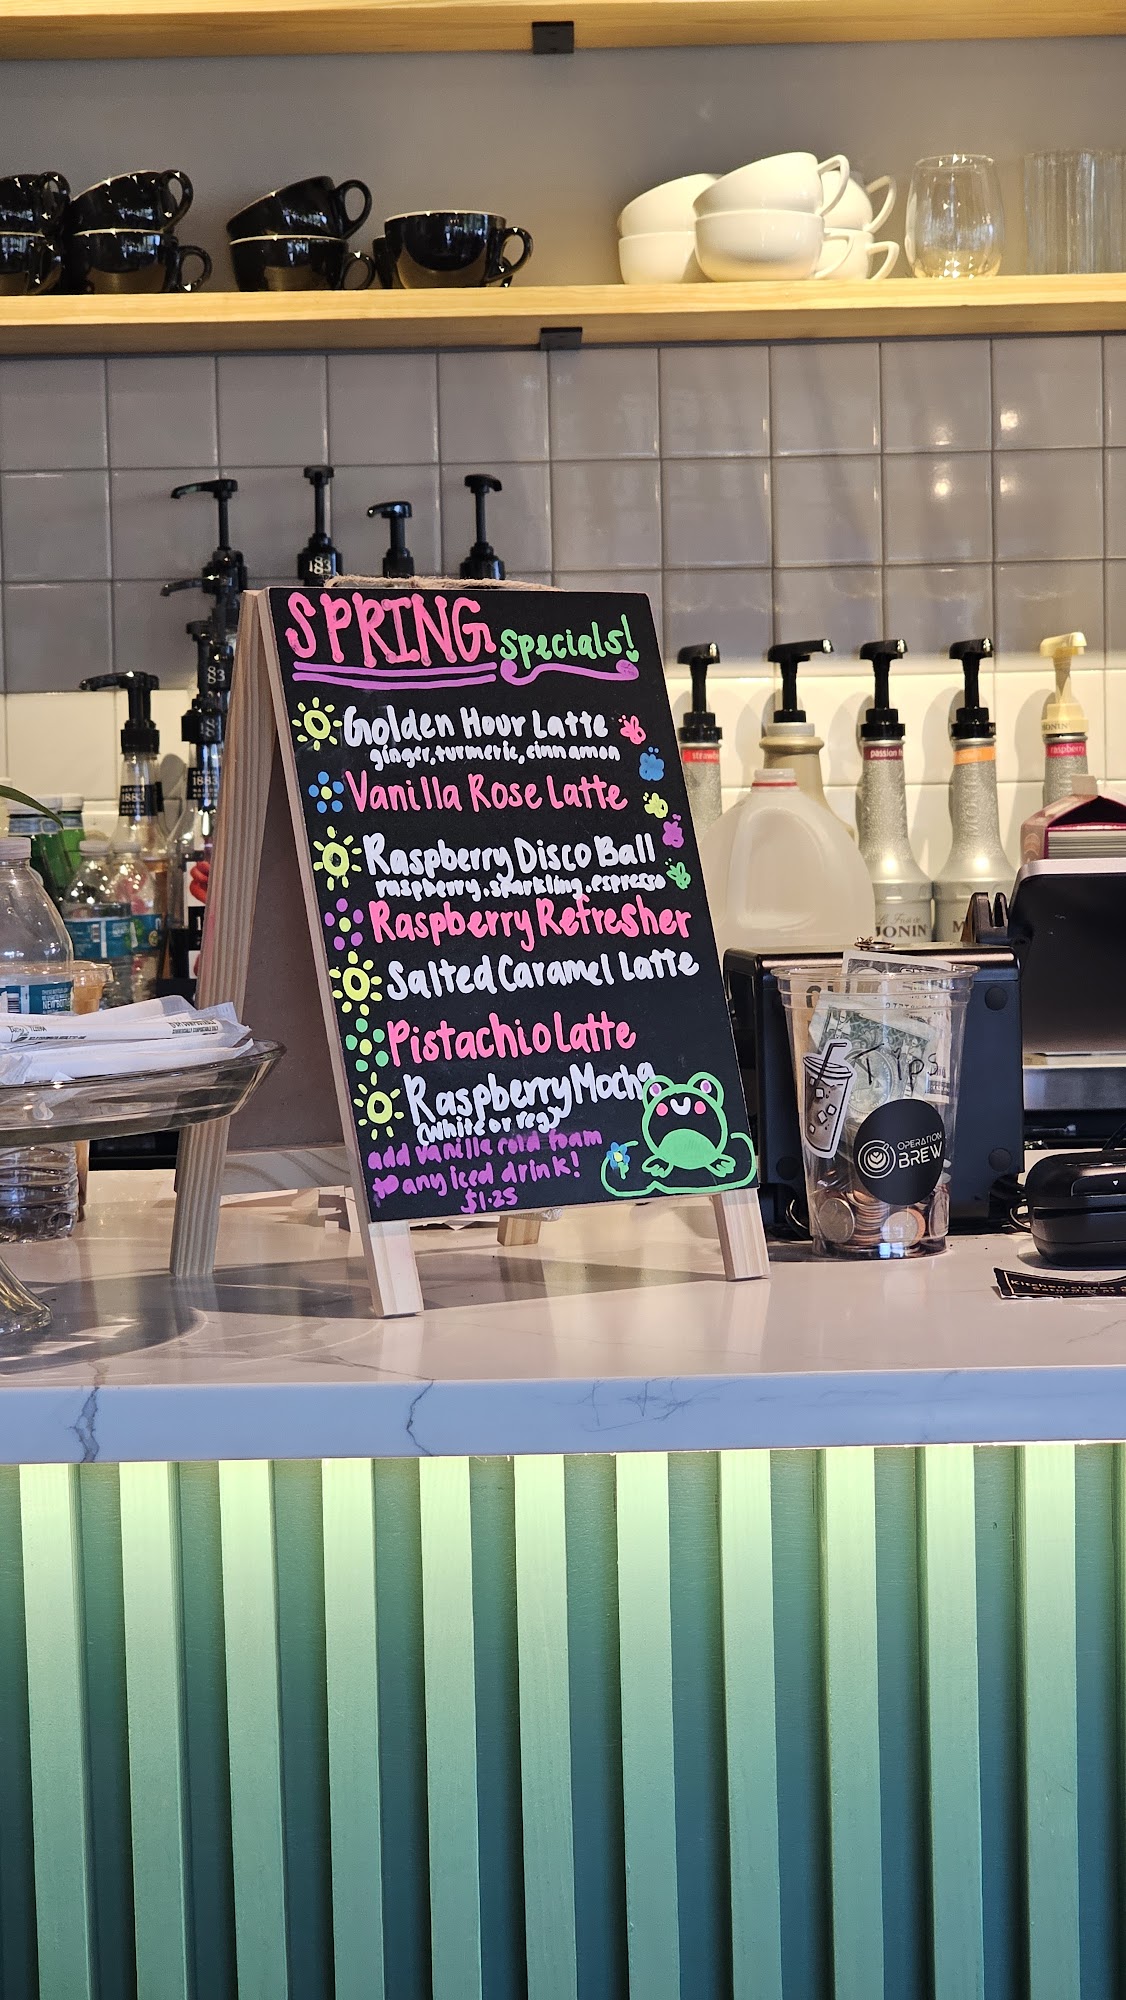 SPRING specials!
Golden Hour Latte
ginger, turmeric, cinnamon
Vanilla Rose Latte
Raspberry Disco Ball
raspberry, sparkling, espresso
Raspberry Refresher
Salted Caramel Latte
Pistachio Latte
Raspberry Mocha
(white or reg)
add vanilla cold foam
to any iced drink!
$1.25
Tips
OPERATION
BREW
183
1883
1883
passion
raspberry
MONIN
MONIN
Kitchen closes